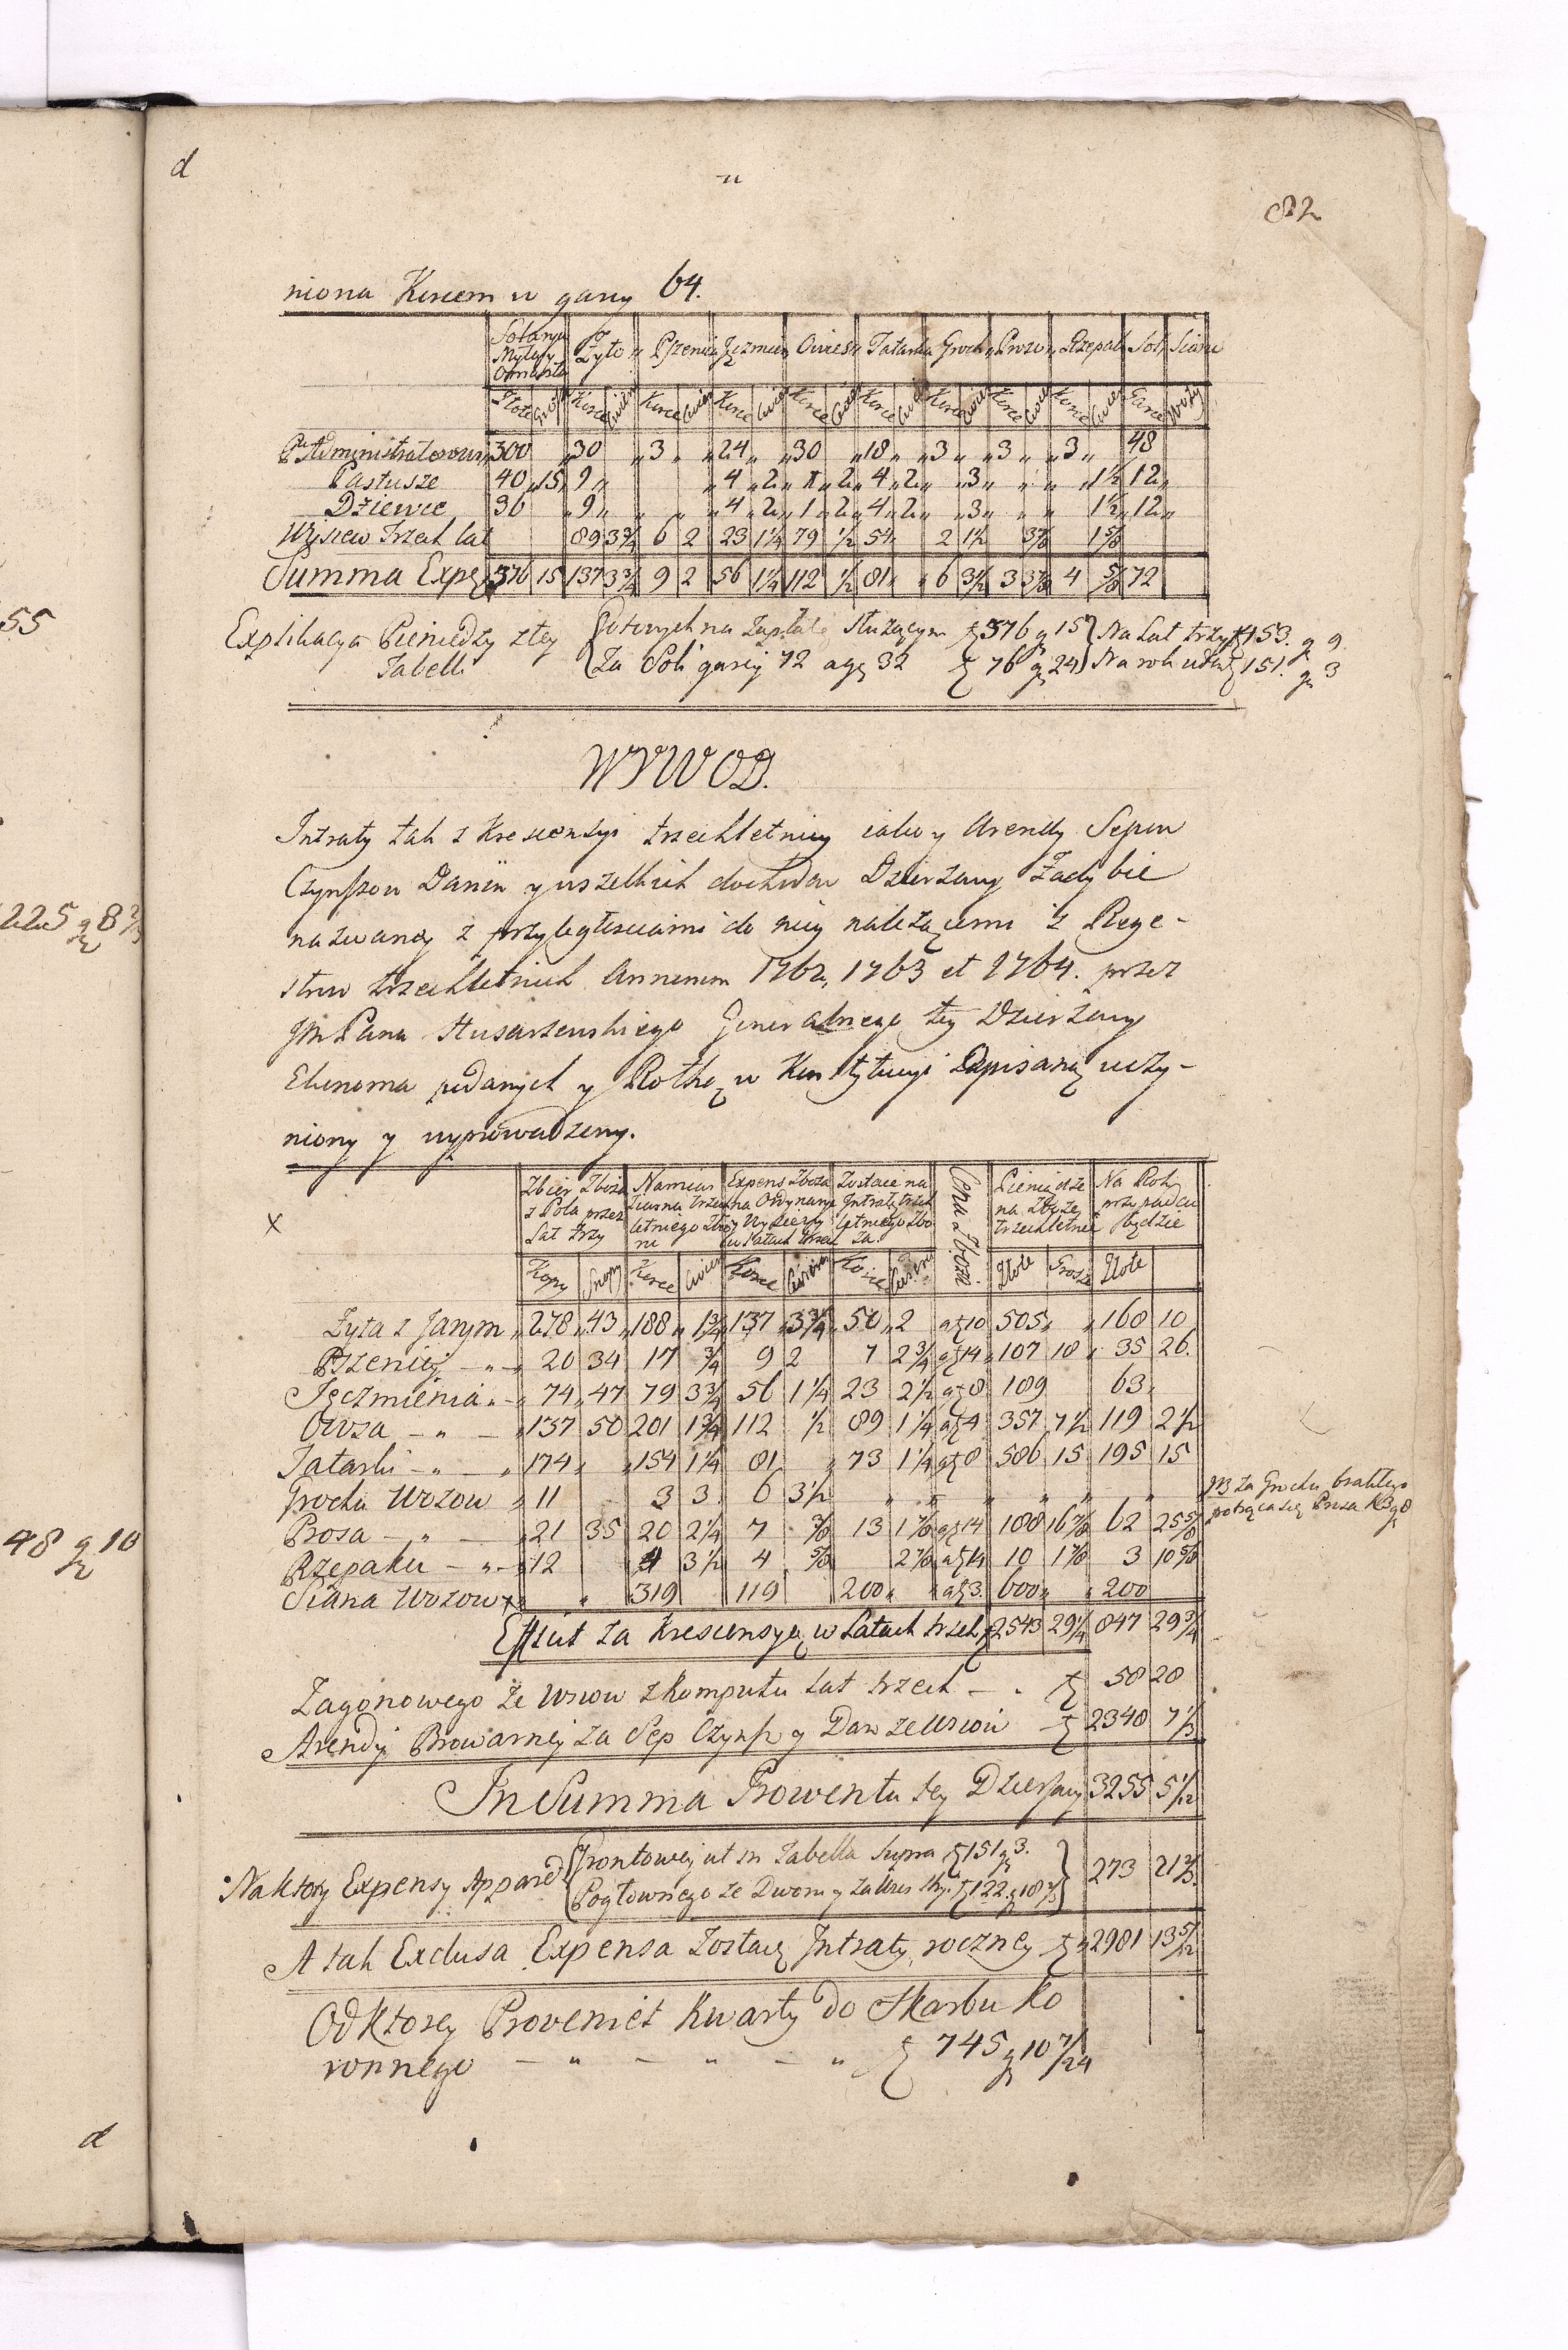 d
82
niona Korcem w garcy 64.
Solarya Mytusy Omasta | Zyto | Pszenica | Jęczmien | Owies | Tatarka | Groch | Proso | Rzepak | Sol | Siano
Złote | Grosze | Korce | Cwierci | Korce | Cwier | Korce | Cwier | Korce | Cwier | Korce | Cwier | Korce | Cwier | Korce | Cwier | Korce | Cwier | Garce | Wozy
Pu Administratorowi 300 „ 30 „ 3 „ „ 24 „ „ 30 „ 18 „ „ 3 „ „ 3 „ „ 3 „ 48
Pastusze 40 „ 15 „ 9 „ „ 4 „ 2 „ 1 „ 2 „ 4 „ 2 „ „ 3 „ „ „ „ 1½ 12 „
Dziewce 36 „ 9 „ „ „ „ 4 „ 2 „ 1 „ 2 „ 4 „ 2 „ „ 3 „ „ „ 1½ „ 12 „
Wysiew Trzech lat 89 3¾ 6 2 23 1¼ 79 ½ 54 „ 2 1½ 3⅞ 1⅝
Summa Expę 376 15 137 3¾ 9 2 56 1¼ 112 ½ 81 „ „ 6 3½ 3 3⅞ 4 ⅝ 72
Explikacya Pieniedzy z tey Tabelli
Gotowych na Zapłatę służącym zł 376 g 15 } Na Lat trzy zł 453. g 9.
Za Soli garcy 72 a gr 32 zł 76 gr 24 } Na rok uczy zł 151. gr 3
WYWOD.
Intraty tak z Krescensyi trzechletniey iako y Arendy Sepow
Czynszow Danin y wszelkich dochodow Dzierzawy Zadybie
nazwaney z przyległosciami do niey nalezącemi z Rege-
strow trzechletnich Annorum 1762, 1763 et 1764. przez
JM Pana Husarzewskiego Generalnego tey Dzierzawy
Ekonoma podanych y Rothą w Konstytucyi Opisaną uczy-
niony y wyprowadzony.
x
Zbior Zboza z Pola przez Lat trzy | Namiar Ziarna trzechletniego Zbioru | Expens Zboza na Ordynarye y Wysiewy w Latach trzech | Zostaie na Intratę trzechletniego Zboza. | Cena Zboza. | Pieniądze na Zboze trzechletnie | Na Rok przypadać będzie
Kopy | Snopy | Korce | Cwierci | Korce | Cwierci | Korce | Cwierci | Złote | Grosze | Złote
Zyta z Jarym „ 278 „ 43 „ 188 „ 1¾ 137 „ 3¾ „ 50 „ 2 a zł 10 505 „ „ 168 10
Pszenicy — „ — 20 34 17 ¾ 9 2 7 2¾ a zł 14 „ 107 18 „ 35 26.
Jęczmienia „ — 74 „ 47 79 3¾ 56 1¼ 23 2½ a zł 8 189 63 „
Owsa — „ — „ 137 50 201 1¾ 112 ½ 89 1¼ a zł 4 357 7½ 119 2½
Tatarki — „ — „ 174 „ „ 154 1¼ 81 „ 73 1¼ a zł 8 586 15 195 15
Grochu Wozow „ 11 3 3 6 3½ „ „ „ „ „ „
Prosa — „ — „ 21 35 20 2¼ 7 ⅜ 13 1⅞ a zł 14 188 16⅞ 62 25⅝
NB za Grochu brakłego potrąca się Prosa K 3 g 8
Rzepaku — „ — 12 4 3½ 4 ⅝ 2⅞ a zł 14 10 1⅞ 3 10⅝
Siana Wozow x „ „ 319 119 200 „ „ a zł 3. 600 „ „ 200
Efficit za Krescensyą w Latach trzech zł 2543 29¼ 847 29¾
Zagonowego ze Wsiow z komputu Lat trzech — „ zł 58 28
Arendy Browarney za Sep Czynsz y Dan ze Wsiow — zł 2348 7⅓
In Summa Prowentu tey Dzierzawy 3255 5 1/12
Na ktorey Expensy Appared (Grontowey ut in Tabella Supra zł 151 gr 3.
Pogłownego ze Dworu zł 122 gr 18⅔) 273 21⅔
A tak Exclusa Expensa Zostaie Intraty roczney zł 2981 13 5/12
Od Ktorey Proveniet Kwarty do Skarbu Ko
ronnego — „ — „ — „ zł 745 gr 10 7/24
55
225 gr 8⅔
48 gr 10
d